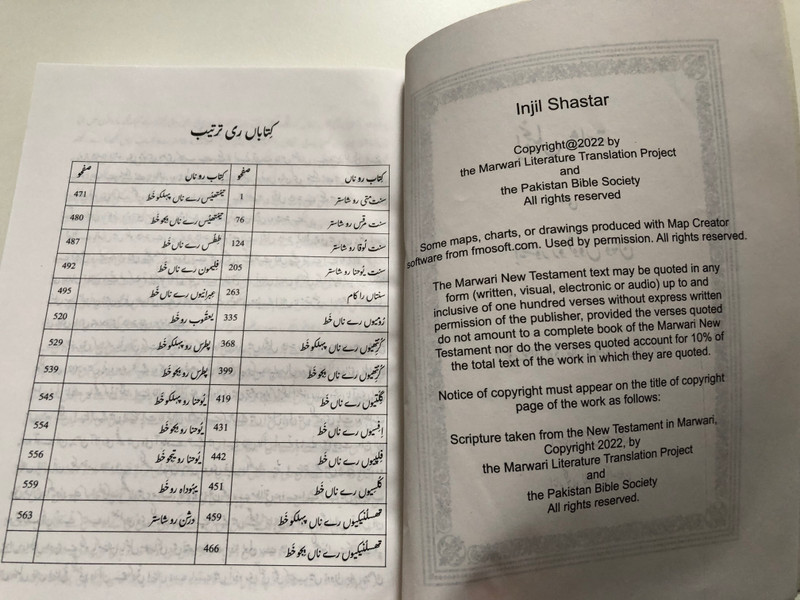 Injil Shastar
Copyright@2022 by
the Marwari Literature Translation Project
and
the Pakistan Bible Society
All rights reserved
Some maps, charts, or drawings produced with Map Creator
software from fmosoft.com. Used by permission. All rights reserved.
The Marwari New Testament text may be quoted in any
form (written, visual, electronic or audio) up to and
inclusive of one hundred verses without express written
permission of the publisher, provided the verses quoted
do not amount to a complete book of the Marwari New
Testament nor do the verses quoted account for 10% of
the total text of the work in which they are quoted.
Notice of copyright must appear on the title of copyright
page of the work as follows:
Scripture taken from the New Testament in Marwari,
Copyright 2022, by
the Marwari Literature Translation Project
and
the Pakistan Bible Society
All rights reserved.
کِتاباں ری ترتیب
کِتاب رو ناں صفحو کِتاب رو ناں صفحو
سنت متی رو شاستر 1 تیمتھیُس رے ناں پہلکو خط 471
سنت مرقس رو شاستر 76 تیمتھیُس رے ناں بیجو خط 480
سنت لُوقا رو شاستر 124 طِطُس رے ناں خط 487
سنت یُوحنا رو شاستر 205 فلیمون رے ناں خط 492
سنتاں را کام 263 عِبرانیوں رے ناں خط 495
رُومیوں رے ناں خط 335 یعقُوب رو خط 520
کُرنتھیوں رے ناں پہلکو خط 368 پطرس رو پہلکو خط 529
کُرنتھیوں رے ناں بیجو خط 399 پطرس رو بیجو خط 539
گلتیوں رے ناں خط 419 یُوحنا رو پہلکو خط 545
اِفسیوں رے ناں خط 431 یُوحنا رو بیجو خط 554
فِلپیوں رے ناں خط 442 یُوحنا رو تیجو خط 556
کُلسیوں رے ناں خط 451 یہُوداہ رو خط 559
تھسلنیکیوں رے ناں پہلکو خط 459 درشن رو شاستر 563
تھسلنیکیوں رے ناں بیجو خط 466